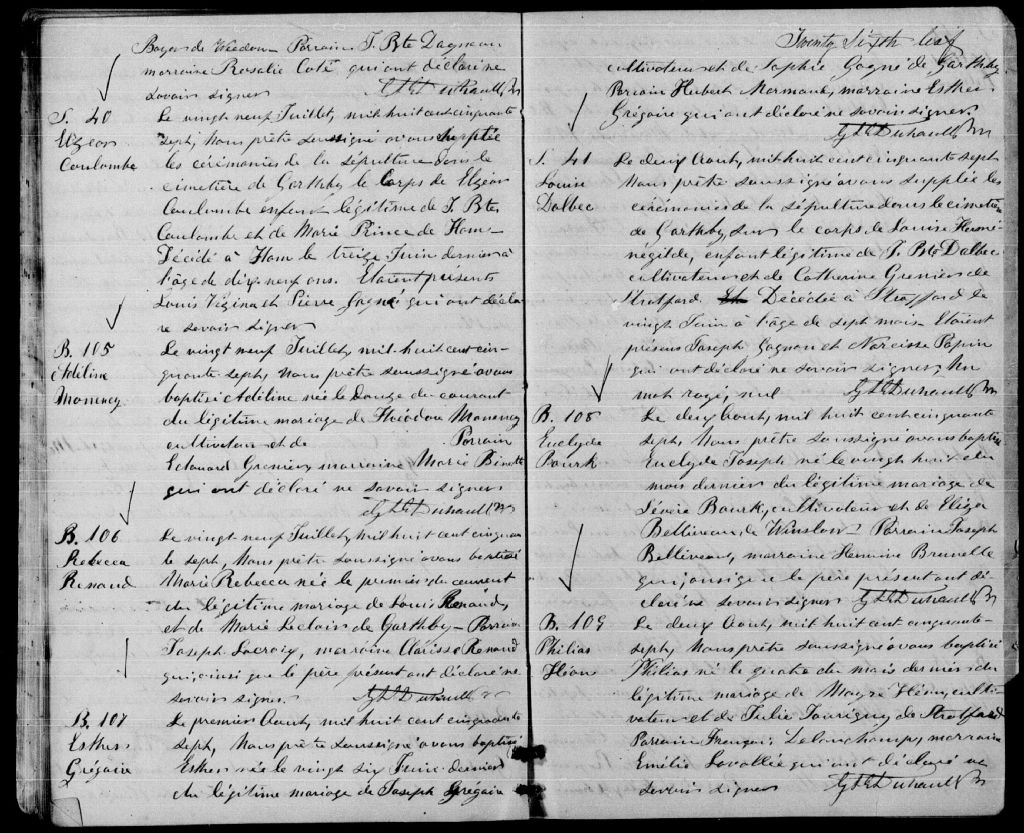 Bayers de Weedon Parrain J. Bte Dagneau
marraine Rosalie Coté qui ont déclaré ne
savoir signer G E Duhault Ptr
S. 40
Elzear
Coulombe
Le vingt neuf Juillet, mil huit cent cinquante
sept, Nous prêtre soussigné avons suppléé
les cérémonies de la sépulture dans le
cimetière de Garthby le corps de Elzéar
Coulombe enfant légitime de J. Bte
Coulombe et de Marie Prince de Ham
Décédé à Ham le treize Juin dernier à
l'âge de dix neuf ans. Etaient présents
Louis Vézina et Pierre Gagné qui ont décla
ré ne savoir signer
B. 105
Adéline
Morency
Le vingt neuf Juillet, mil huit cent cin-
quante sept, Nous prêtre soussigné avons
baptisé Adiline née le Douze du courant
du légitime mariage de Théodore Morency
cultivateur et de Parrain
Edouard Grenier, marraine Marie Binett
qui ont déclaré ne savoir signer
G E Duhault Ptr
B. 106
Rebecca
Renaud
Le vingt neuf Juillet, mil huit cent cinquan
te sept, Nous prêtre soussigné avons baptisé
Marie Rebecca née le premier du courant
du légitime mariage de Louis Renaud,
et de Marie Leclair de Garthby – Parrain
Joseph Lacroix, marraine Clarisse Renaud
qui, ainsi que le père présent ont déclaré ne
savoir signer. G E Duhault
B. 107
Esther
Grégoire
Le premier Aout, mil huit cent cinquante
sept, Nous prêtre soussigné avons baptisé
Esther née le vingt six Juin dernier
du légitime mariage de Joseph Grégoire
Twenty Sixth leaf
cultivateur et de Sophie Gagné de Garthby
Parrain Hubert Normand, marraine Esther
Grégoire qui ont déclaré ne savoir signer.
G E Duhault Ptr
S. 41
Louise
Dalbec
Le deux Aout, mil huit cent cinquante sept
Nous prêtre soussigné avons suppléé les
cérémonies de la sépulture dans le cimetière
de Garthby, sur le corps de Louise Hermé-
négilde, enfant légitime de J. Bte Dalbec
cultivateur et de Catherine Grenier de
Stratford. Décédée à Stratford le
vingt Juin à l'âge de sept mois Etaient
présens Joseph Gagnon et Narcisse Papin
qui ont déclaré ne savoir signer, Un
mot rayé, nul G E Duhault Ptr
B. 108
Euclyde
Bourk
Le deux Aout, mil huit cent cinquante
sept, Nous prêtre soussigné avons baptisé
Euclyde Joseph né le vingt huit du
mois dernier du légitime mariage de
Sévère Bourk, cultivateur et de Eliza
Belliveau, de Winslow – Parrain Joseph
Belliveau, marraine Hermine Brunelle
qui, ainsi que le père présent ont dé-
claré ne savoir signer G E Duhault Ptr
B. 109
Philias
Héon
Le deux Aout, mil huit cent cinquante-
sept, Nous prêtre soussigné avons baptisé
Philias né le quatre du mois dernier du
légitime mariage de Héon, culti-
vateur et de Julie Tourigny de Stratford
Parrain François Lalonchamp, marraine
Emélie Lavallée qui ont déclaré ne
savoir signer G E Duhault Ptr